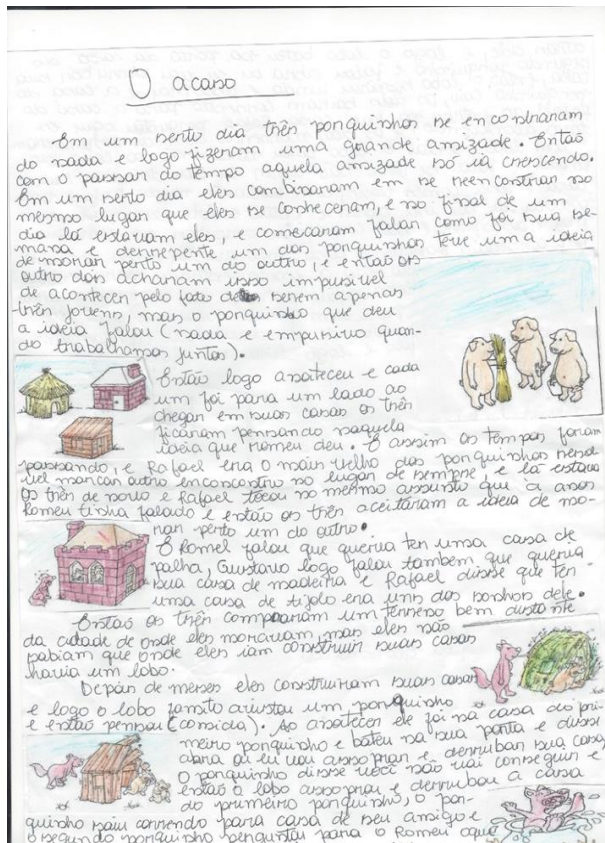 O acaso
Em um serto dia três porquinhos se encontraram
do nada e logo fizeram uma grande amizade. Então
com o passar do tempo aquela amizade só ia crescendo.
Em um serto dia eles combinaram em se reencontrar no
mesmo lugar que eles se conheceram, e no final de um
dia lá estavam eles, e comecaram falar como foi sua se-
mana e derrepente um dos porquinhos teve uma ideia
de morar perto um do outro, e então os
outro dois acharam isso impusivel
de acontecer pelo fato de serem apenas
três jovens, mas o porquinho que deu
a ideia falou (nada e empusivo quan-
do trabalhamos juntos).
Então logo anoiteceu e cada
um foi para um lado ao
chegar em suas casas os três
ficaram pensando naquela
ideia que Romeu deu. E assim os tempos foram
passando, e Rafael era o mais velho dos porquinhos resou
vel marcar outro enconcontro no lugar de sempre e lá estava
os três de novo e Rafael tocou no mesmo assunto que a anos
Romeu tinha falado e então os três aceitaram a ideia de mo-
rar perto um do outro.
O Romel falou que queria ter uma casa de
palha, Gustavo logo falou também que queria
sua casa de madeira e Rafael disse que ter
uma casa de tijolo era uns dos sonhos dele.
Então os três compraram um terreno bem distante
da cidade de onde eles moravam, mas eles não
sabiam que onde eles iam construir suas casas
havia um lobo.
Depois de meses eles construiram suas casas
e logo o lobo faminto avistou um porquinho
e então pensou (comida). Ao anoitecer ele foi na casa do pri-
meiro porquinho e bateu na sua porta e disse
abra ou eu vou assoprar e derrubar sua casa
o porquinho disse você não vai conseguir e
então o lobo assoprou e derrubou a casa
do primeiro porquinho, o por-
quinho saiu correndo para casa de seu amigo e
o segundo porquinho perguntou para o Romeu oque